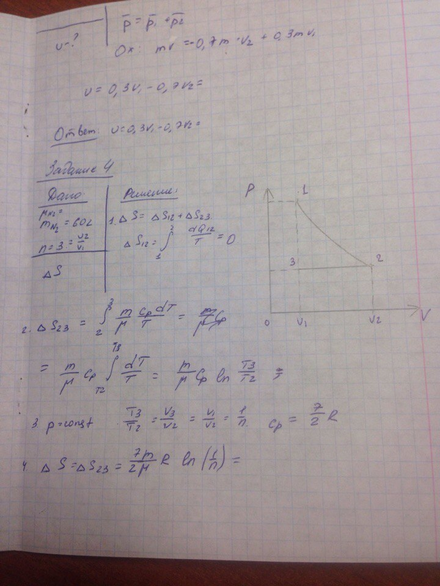 p̄ = p̄₁ + p̄₂
u - ?
Ox: mv = -0,7m·v₂ + 0,3mv₁
u = 0,3v₁ - 0,7v₂ =
Ответ: u = 0,3v₁ - 0,7v₂ =
Задание 4
Дано
Решение:
m_N₂ = 60г
n = 3 = v₂/v₁
ΔS
1. ΔS = ΔS₁₂ + ΔS₂₃
ΔS₁₂ = ∫ dQ₁₂/T = 0
P
1
3
2
0
V₁
V₂
V
2. ΔS₂₃ = ∫₂³ m/μ cp dT/T = m/μ cp
= m/μ cp ∫_T₂^T₃ dT/T = m/μ cp ln T₃/T₂ =
3. p = const T₃/T₂ = V₃/V₂ = V₁/V₂ = 1/n cp = 7/2 R
4. ΔS = ΔS₂₃ = 7m/2μ R ln(1/n) =